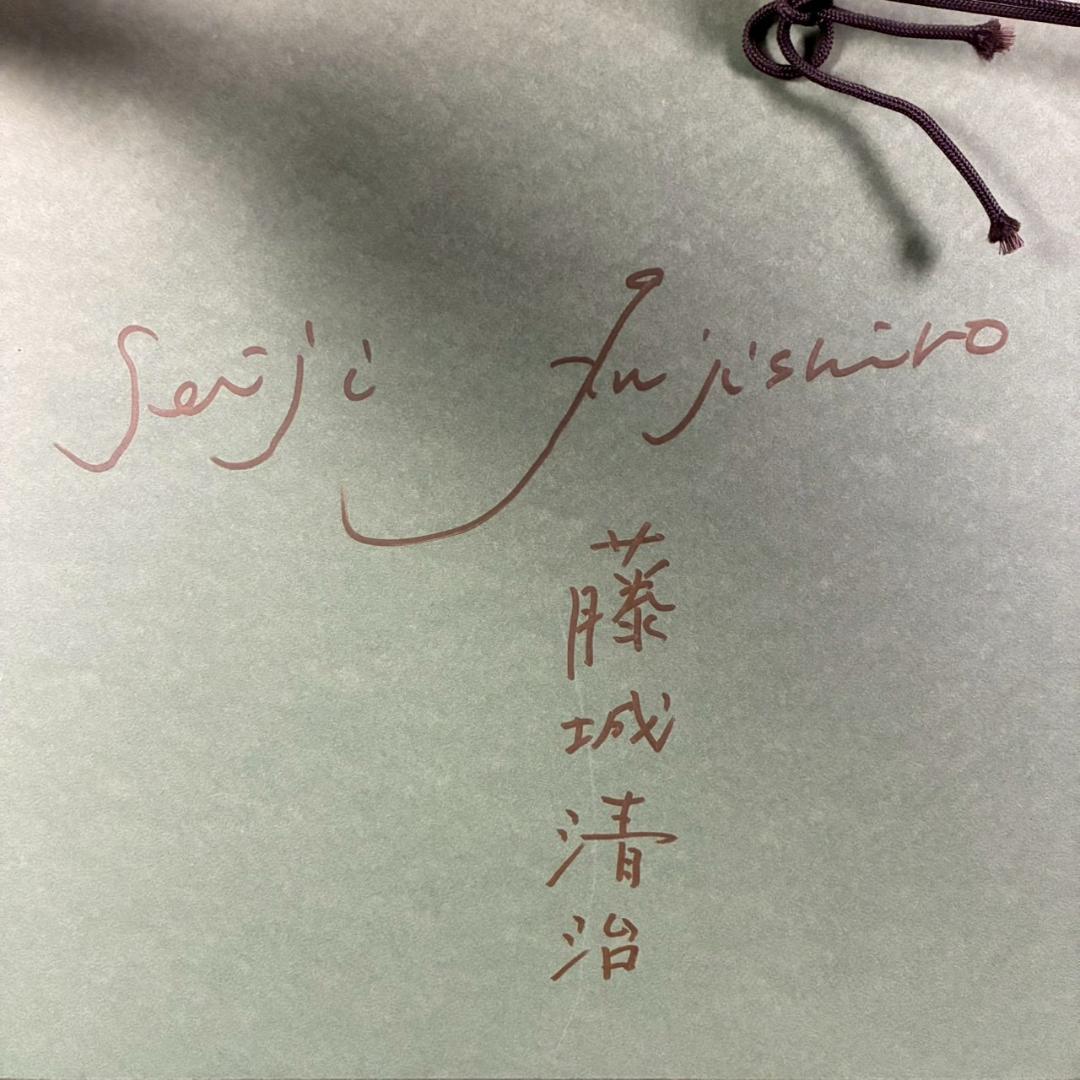 Seiji Fujishiro
藤城清治